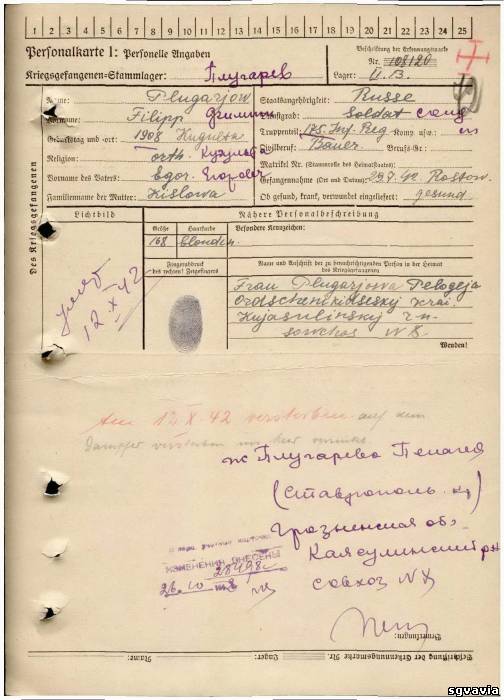 1 2 3 4 5 6 7 8 9 10 11 12 13 14 15 16 17 18 19 20 21 22 23 24 25
Personalkarte I: Personelle Angaben
Beschriftung der Erkennungsmarke
Nr. 108120
Kriegsgefangenen-Stammlager: Плугарев
Lager:
Des Kriegsgefangenen
Name: Plugarjow
Staatsangehörigkeit: Russe
Vorname: Filipp Филипп
Dienstgrad: Soldat солд
Geburtstag und -ort: 1908 Kugulta
Truppenteil: 175. Inf. Reg. Komp. usw.:
Religion: orth. Кугульта
Zivilberuf: Bauer Berufs-Gr.:
Vorname des Vaters: Egor Егорович
Matrikel Nr. (Stammrolle des Heimatstaates):
Gefangennahme (Ort und Datum): 29.7.42 Rostow
Familienname der Mutter: Kislowa
Ob gesund, krank, verwundet eingeliefert: gesund
Lichtbild
Nähere Personalbeschreibung
Größe Haarfarbe Besondere Kennzeichen:
168 blonden
Fingerabdruck
des rechten! Zeigefingers
Name und Anschrift der zu benachrichtigenden Person in der Heimat
des Kriegsgefangenen
12.X.42
Frau Plugarjowa Pelogeja
Ordschenikidseskij Krai
Kajasulinskij
sowchos N 8
Wenden!
Am 12.X.42 verstorben auf dem
Dampfer
ж Плугарева Пелагея
(Ставрополь. кр)
Грозненская об.
Каясулинский рн
совхоз N 8
ИЗМЕНЕНИЯ ВНЕСЕНЫ
Bemerkungen:
Beschriftung der Erkennungsmarke Nr.
Lager:
Name:
sgvavia